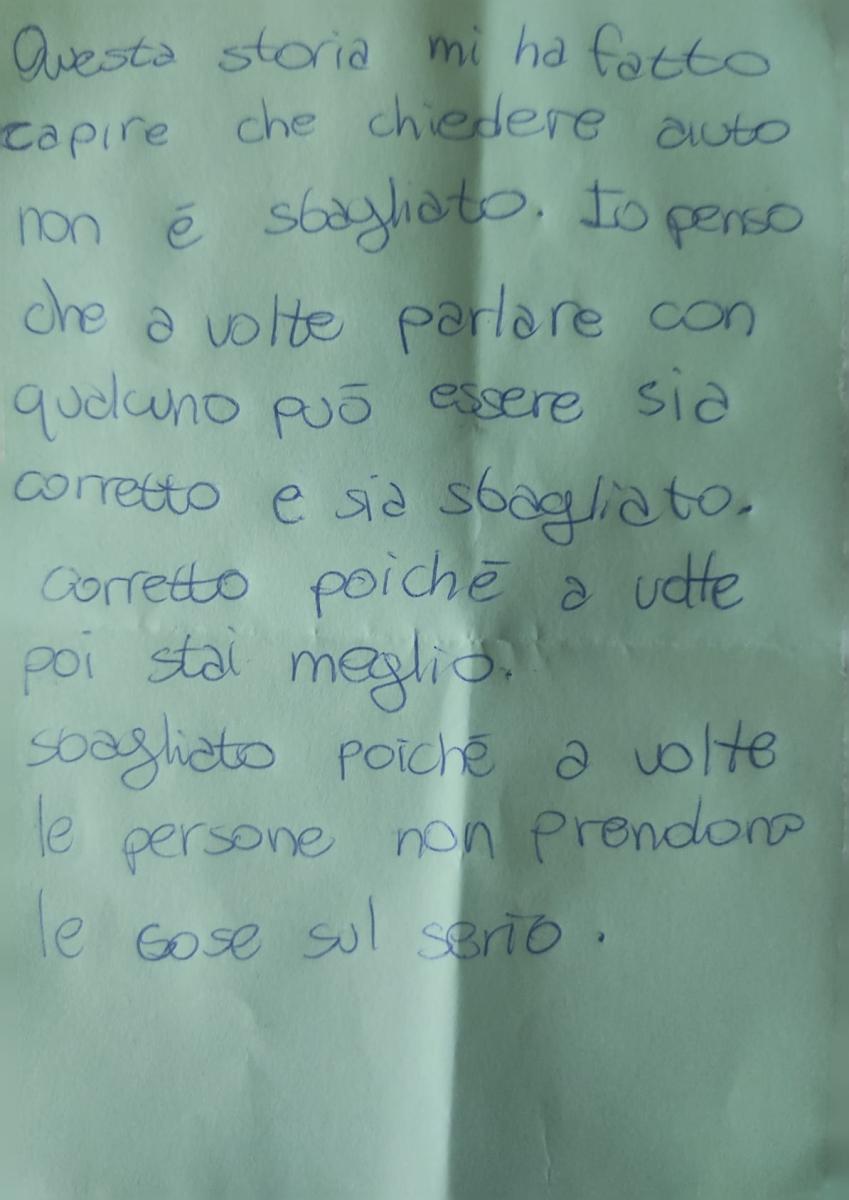 Questa storia mi ha fatto
capire che chiedere aiuto
non è sbagliato. Io penso
che a volte parlare con
qualcuno può essere sia
corretto e sia sbagliato.
corretto poiché a volte
poi stai meglio.
sbagliato poiché a volte
le persone non prendono
le cose sul serio.